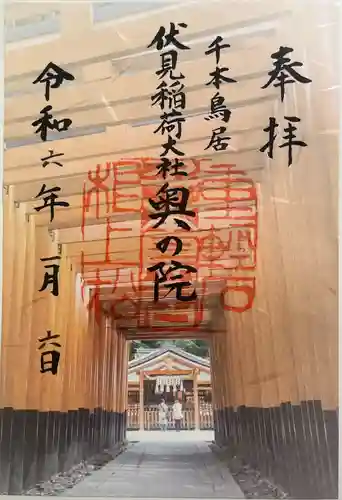 奉拝
千本鳥居
伏見稲荷大社
奥の院
令和六年一月六日